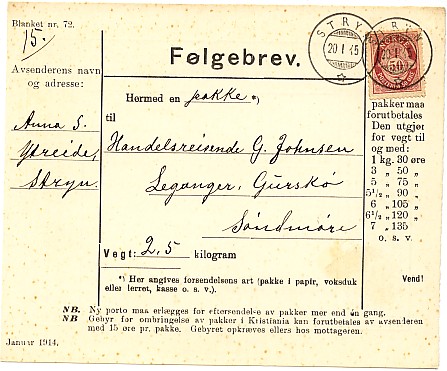 Blanket nr. 72.
15.
STRYN
20 I 15
STRYN
50
Følgebrev.
Avsenderens navn
og adresse:
Anna S.
Ytreeide,
Stryn.
Hermed en pakke *)
til
Handelsreisende G. Johnsen
Leganger, Gurskø
Søndmøre
Vegt: 2,5 kilogram
*) Her angives forsendelsens art (pakke i papir, voksduk
eller lerret, kasse o. s. v.).
pakker maa
forutbetales
Den utgjør
for vegt til
og med:
1 kg. 30 øre
3 „ 50 „
5 „ 75 „
5½ „ 90 „
6 „ 105 „
6½ „ 120 „
7 „ 135 „
o. s. v.
Vend!
NB. Ny porto maa erlægges for eftersendelse av pakker mer end én gang.
NB Gebyr for ombringelse av pakker i Kristiania kan forutbetales av avsenderen
med 15 øre pr. pakke. Gebyret opkræves ellers hos mottageren.
Januar 1914.